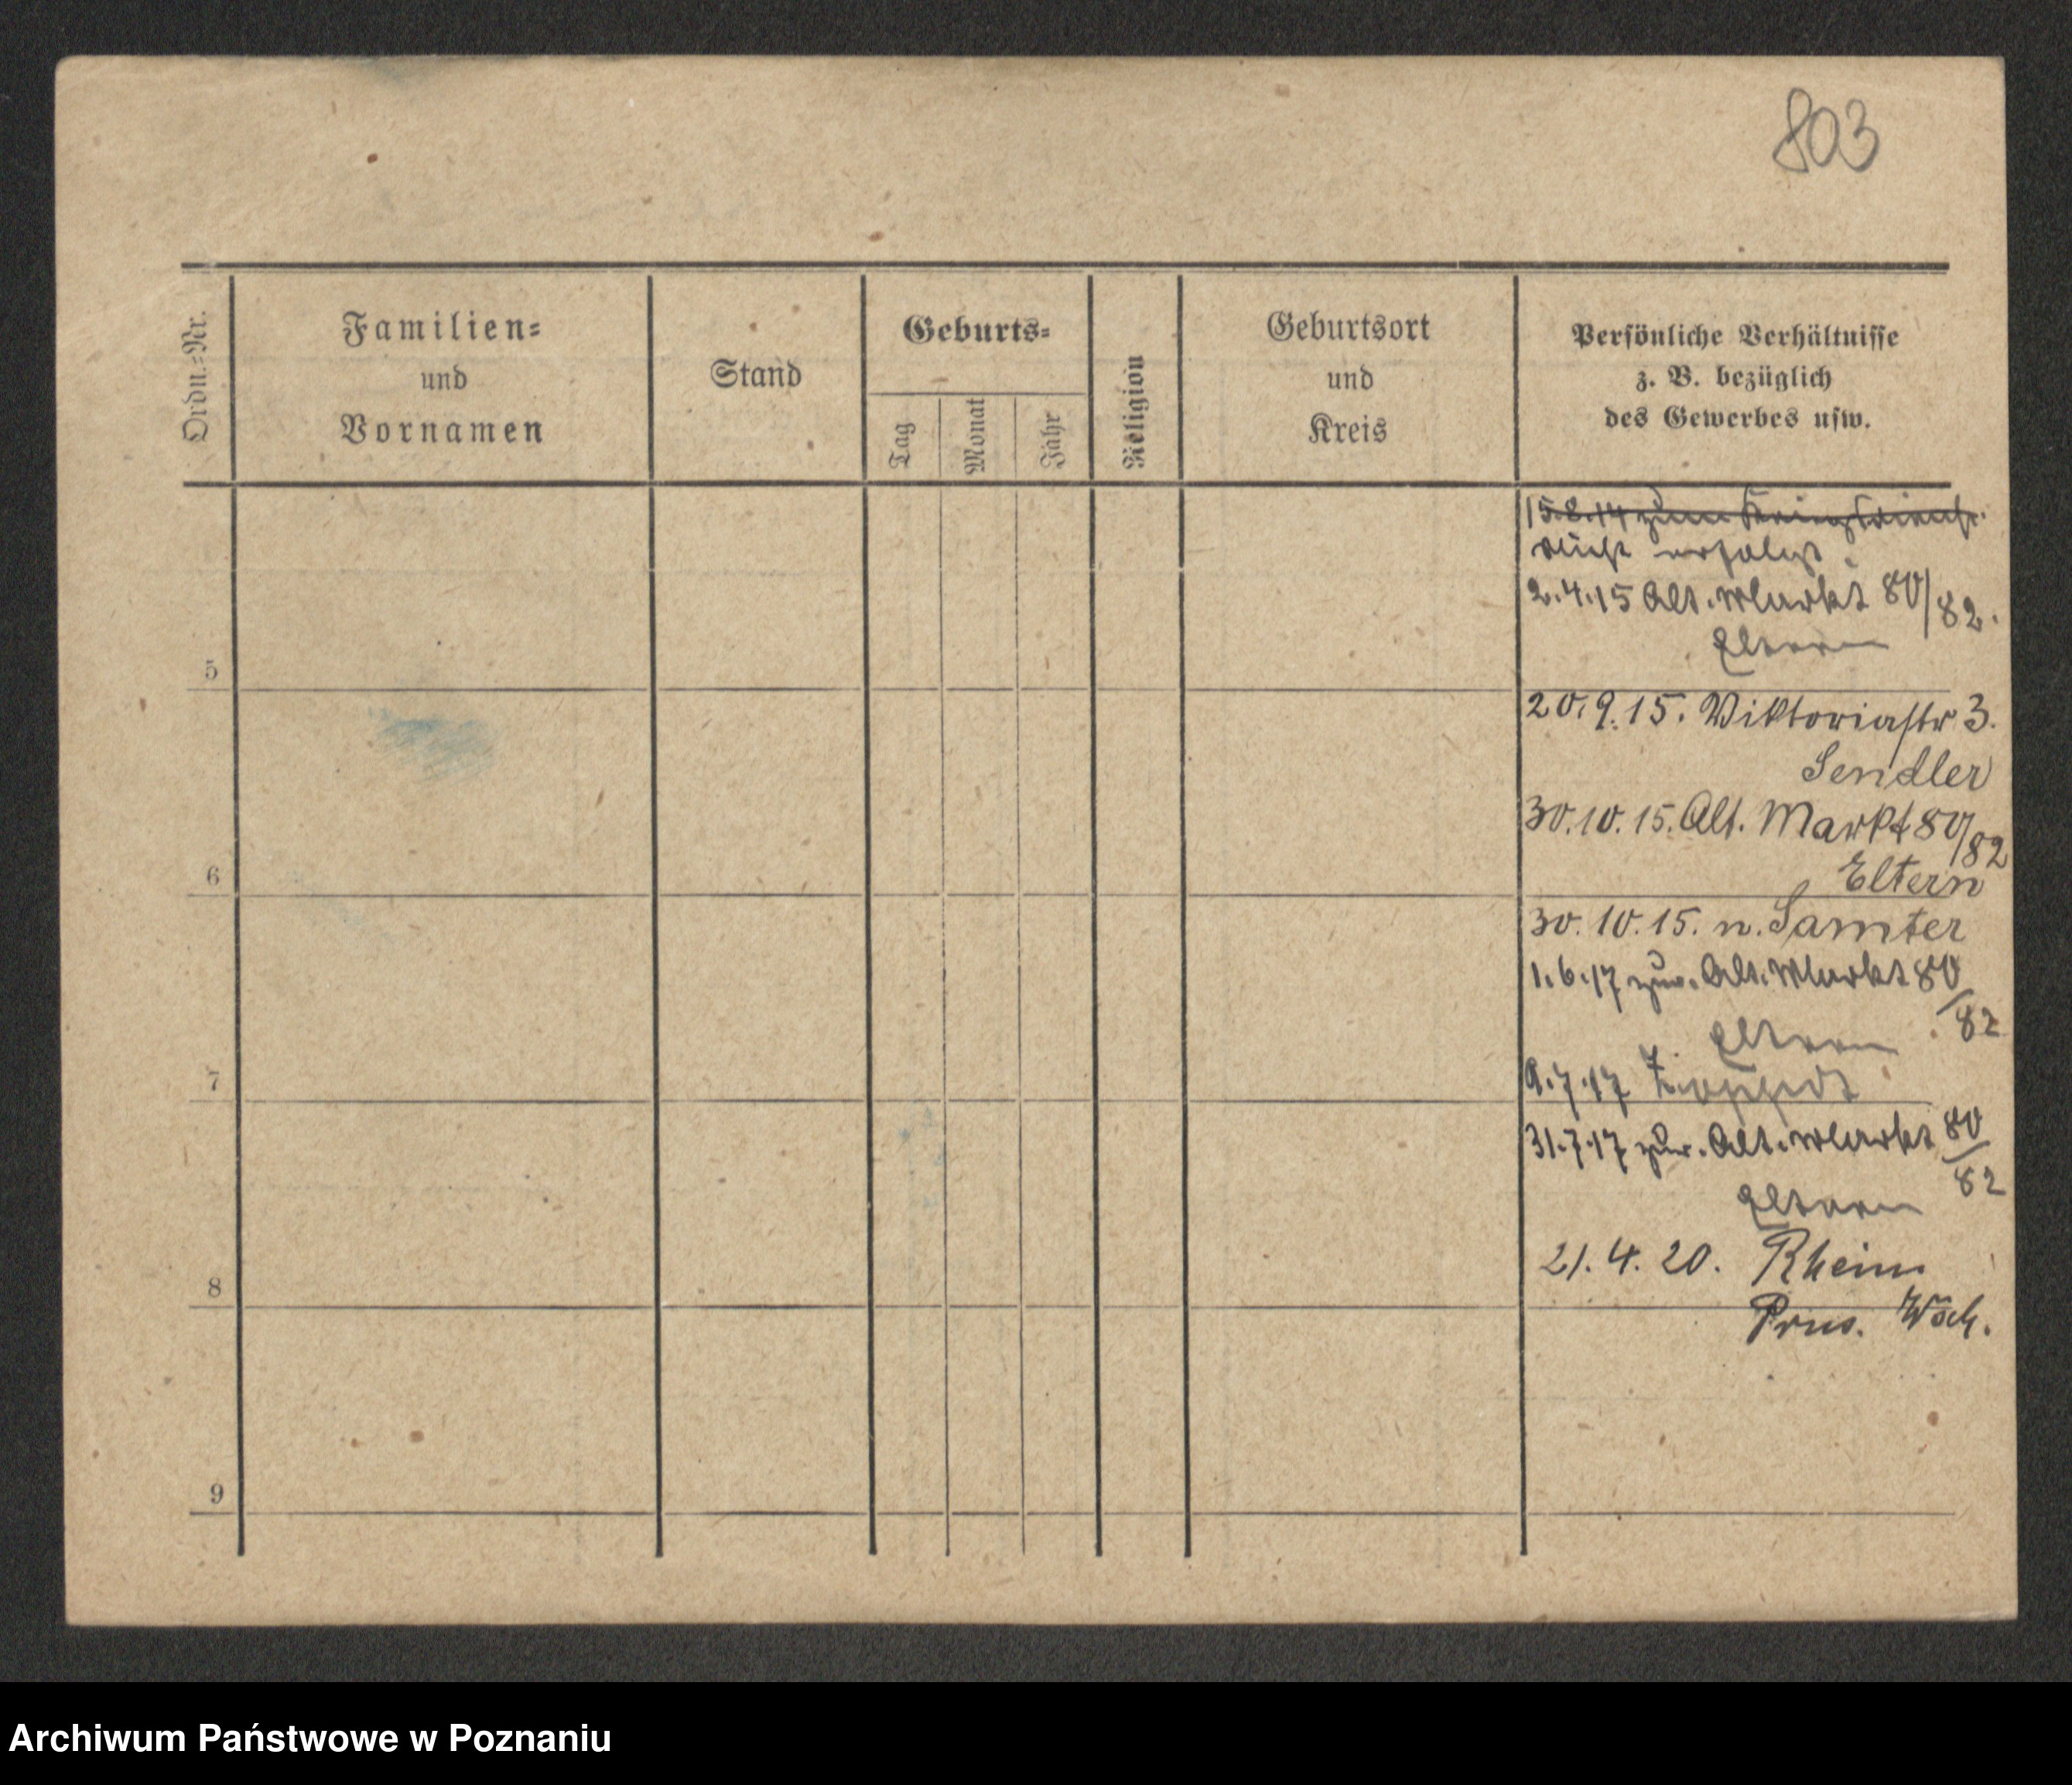 803
Ordn.-Nr.
Familien-
und
Vornamen
Stand
Geburts-
Tag
Monat
Jahr
Religion
Geburtsort
und
Kreis
Persönliche Verhältnisse
z. B. bezüglich
des Gewerbes usw.
15.8.14 zum Kriegsdienst
nicht erfolgt.
2.4.15 Alt. Markt 80/82.
Eltern
5
20.9.15. Viktoriastr 3.
Sendler
30.10.15. Alt. Markt 80/82
Eltern
6
30.10.15. n. Samter
1.6.17 zur. Alt. Markt 80/82
Eltern
9.7.17 Zoppot
7
31.7.17 zur. Alt. Markt 80/82
Eltern
21.4.20. Rhein
8
Prov. Wöch.
9
Archiwum Państwowe w Poznaniu